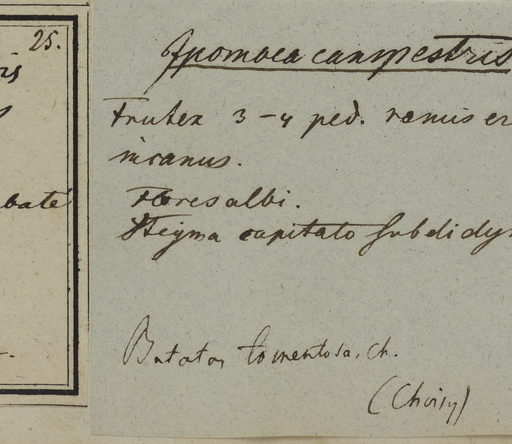 25.
Ipomoea campestris
Frutex 3-4 ped. ramis er
incanus.
Flores albi.
Stigma capitato subdidy
Batatas tomentosa. Ch.
(Choisy)